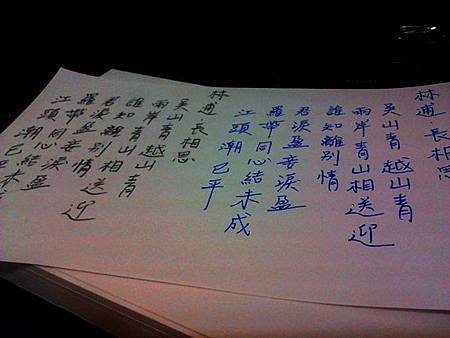 林逋 長相思
吳山青 越山青
兩岸青山相送迎
誰知離別情
君淚盈妾淚盈
羅帶同心結未成
江頭潮已平
林逋 長相思
吳山青 越山青
兩岸青山相送迎
誰知離別情
君淚盈妾淚盈
羅帶同心結未成
江頭潮已平